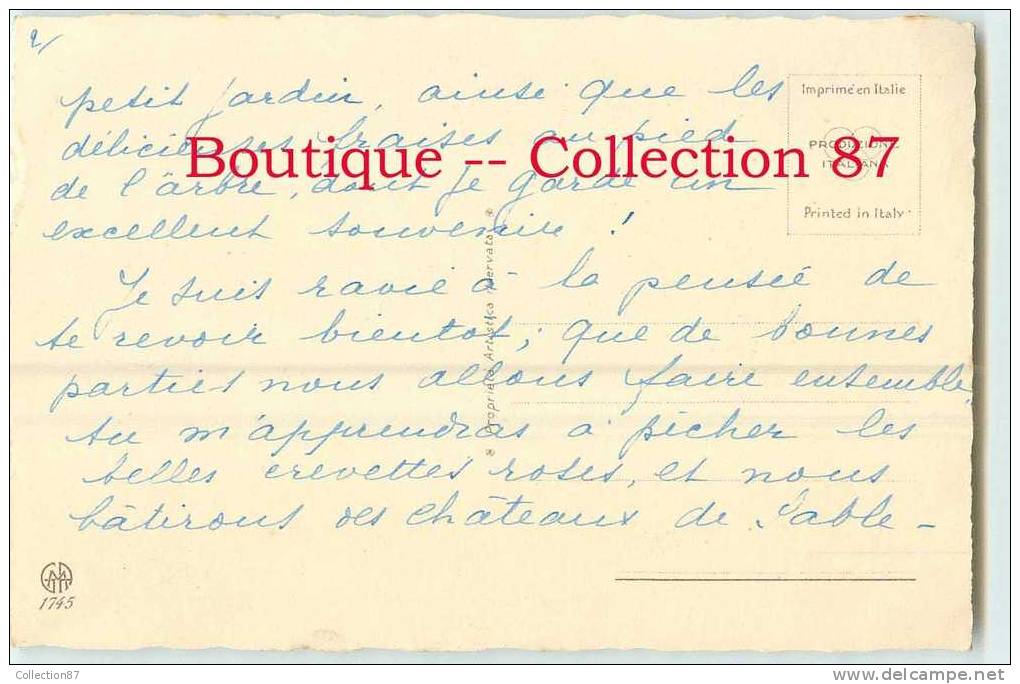 2/
petit jardin, ainsi que les
délicieuses fraises au pied
de l'ârbre, dont je garde un
excellent souvenir !
Je suis ravie à la pensée de
te revoir bientot; que de bonnes
parties nous allons faire ensemble,
tu m'apprendras à pêcher les
belles crevettes roses, et nous
bâtirons des châteaux de sable -
Imprimé en Italie
PRODUZIONE
ITALIANA
Printed in Italy
Proprietà Artistica Riservata
1745
Boutique -- Collection 87
Collection87
delcampe.net